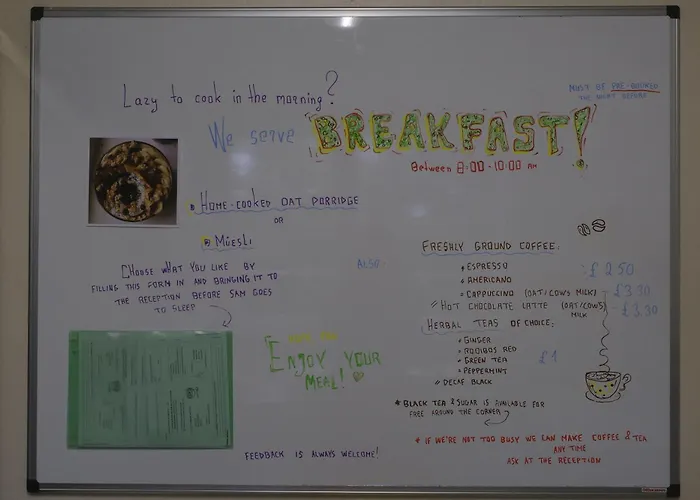 Lazy to cook in the morning?
MUST BE PRE-BOOKED
THE NIGHT BEFORE
We serve BREAKFAST!
Between 8:00-10:00 AM
HOME-COOKED OAT PORRIDGE
OR
MÜESLI
CHOOSE WHAT YOU LIKE BY
FILLING THIS FORM IN AND BRINGING IT TO
THE RECEPTION BEFORE SAM GOES
TO SLEEP
ALSO:
FRESHLY GROUND COFFEE:
ESPRESSO
AMERICANO
£2.50
CAPPUCCINO (OAT/COWS MILK) £3.30
HOT CHOCOLATE LATTE (OAT/COWS MILK) £3.30
HERBAL TEAS OF CHOICE:
GINGER
ROOIBOS RED
GREEN TEA £1
PEPPERMINT
DECAF BLACK
* BLACK TEA & SUGAR IS AVAILABLE FOR
FREE AROUND THE CORNER
ENJOY YOUR
MEAL!
FEEDBACK IS ALWAYS WELCOME!
* IF WE'RE NOT TOO BUSY WE CAN MAKE COFFEE & TEA
ANY TIME
ASK AT THE RECEPTION